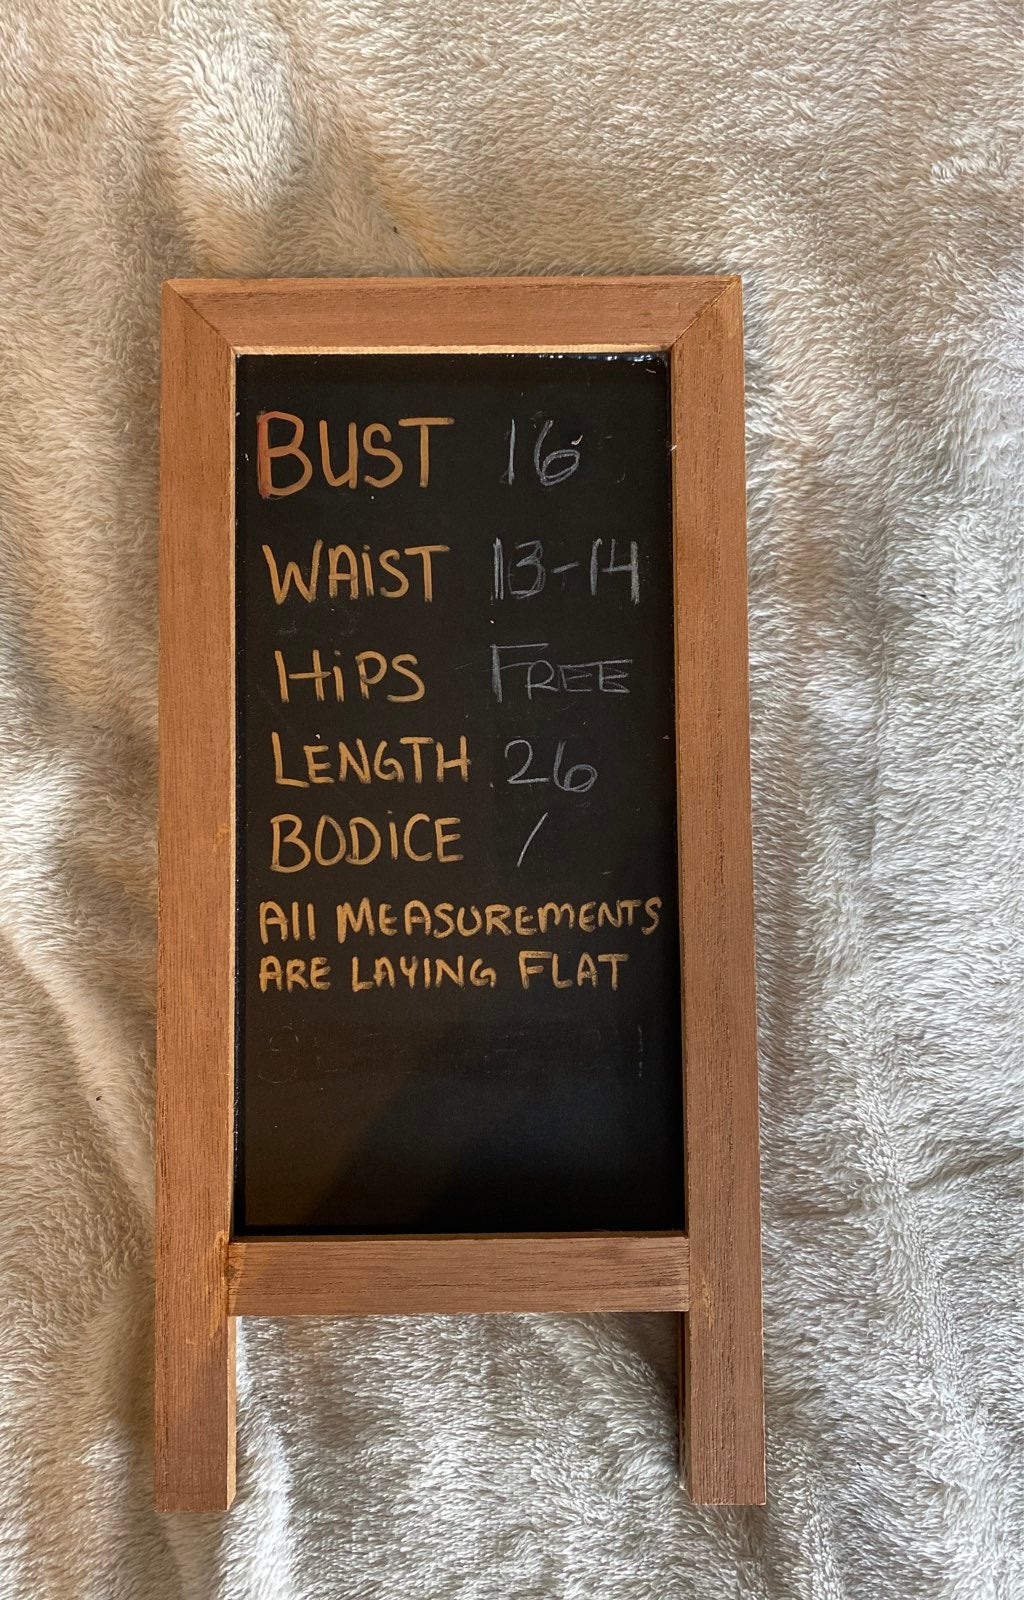 BUST 16
WAiST 13-14
HiPS FREE
LENGTH 26
BODiCE /
All MEASUREMENTS
ARE LAYING FLAT